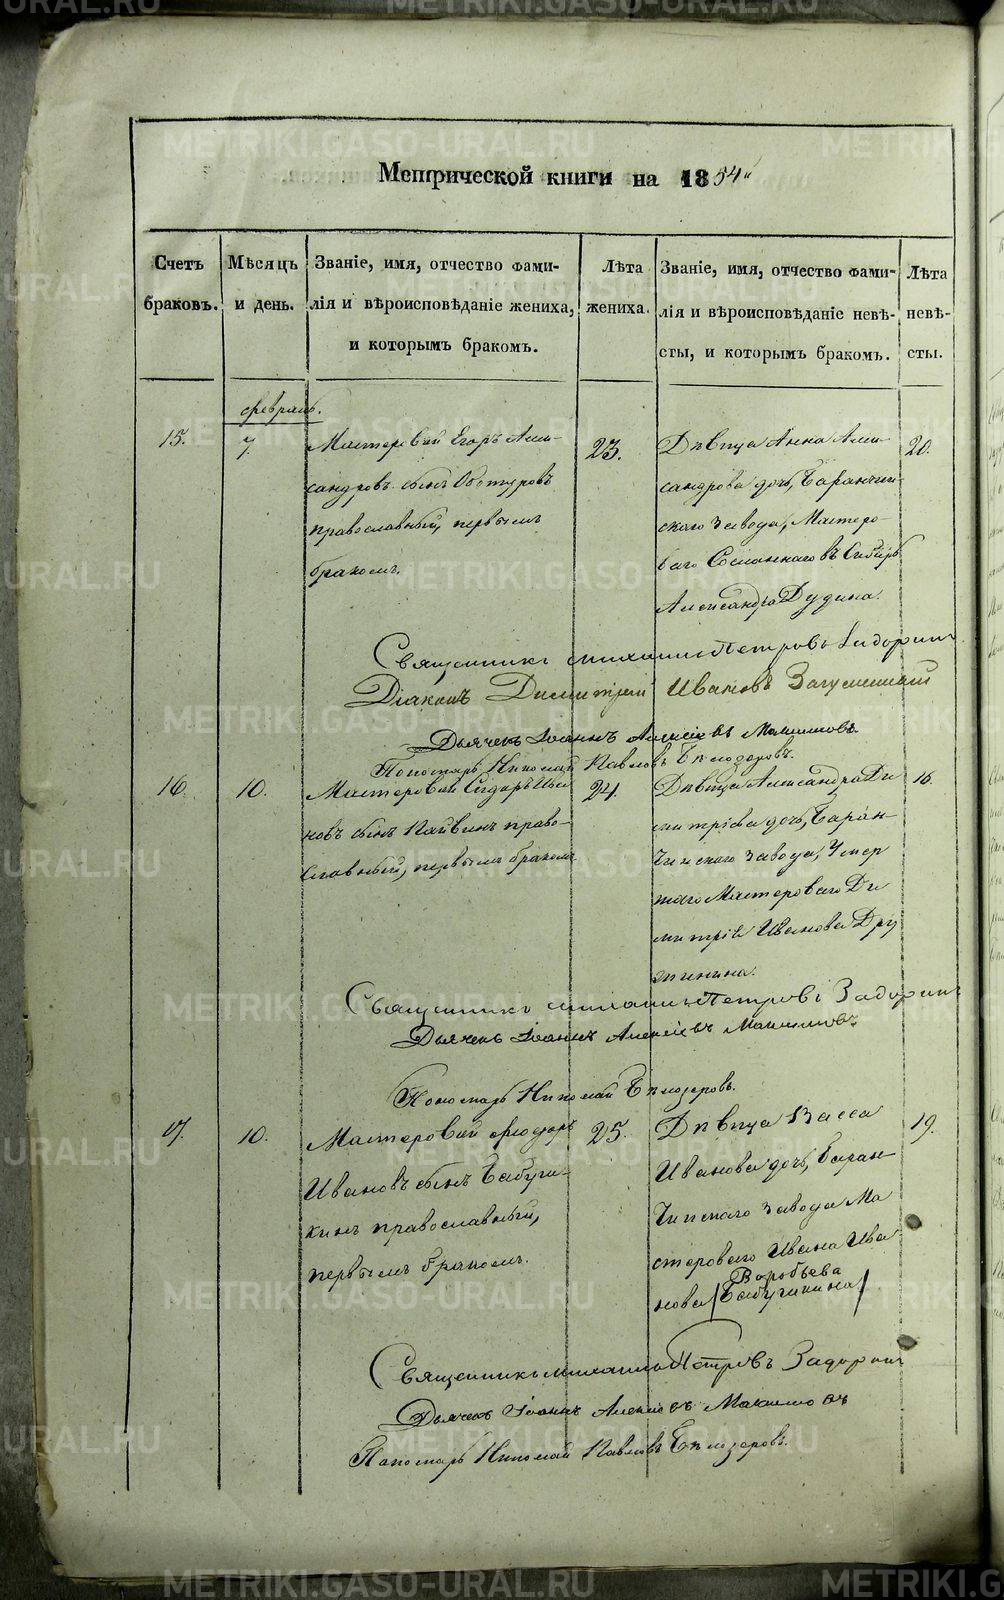 Метрической книги на 1854 
Счетъ браковъ.
Мѣсяцъ и день.
Званіе, имя, отчество фами-
лія и вѣроисповѣданіе жениха,
и которымъ бракомъ.
Лѣта жениха.
Званіе, имя, отчество фами-
лія и вѣроисповѣданіе невѣ-
сты, и которымъ бракомъ.
Лѣта невѣ-
сты.
февраль.
15.
7.
Мастеровай Егоръ Алек-
сандровъ сынъ
православный, первымъ
бракомъ.
23.
Дѣвица Анна Алек-
сандрова дочь, Баранчин-
скаго завода, Мастеро-
ваго Сосланнаго въ Сибирь
Александра Дудина.
20.
Священникъ Михаилъ Петровъ Задоринъ
Діаконъ Димитрій Ивановъ
Дьячекъ Іоаннъ Алексіевъ Максимовъ
Пономарь Николай Павловъ Бѣлозеровъ.
16.
10.
Мастеровай Сидоръ Ива-
новъ сынъ право-
славный, первымъ бракомъ
24.
Дѣвица Александра Ди
митріева дочь, Баран-
чинскаго завода, Умер
шаго Мастероваго Ди
митрія Иванова Дру
жинина.
16.
Священникъ Михаилъ Петровъ Задоринъ
Дьячекъ Іоаннъ Алексіевъ Максимовъ
Пономарь Николай Бѣлозеровъ.
17.
10.
Мастеровай Ѳеодоръ
Ивановъ сынъ Бабуш-
кинъ православный,
первымъ бракомъ.
25.
Дѣвица Васса
Иванова дочь, Баран-
чинскаго завода Ма
стероваго Ивана Ива
Воробьева
нова (Бабушкина)
19.
Священникъ Михаилъ Петровъ Задоринъ
Дьячекъ Іоаннъ Алексіевъ Максимовъ
Пономарь Николай Павловъ Бѣлозеровъ.
METRIKI.GASO-URAL.RU